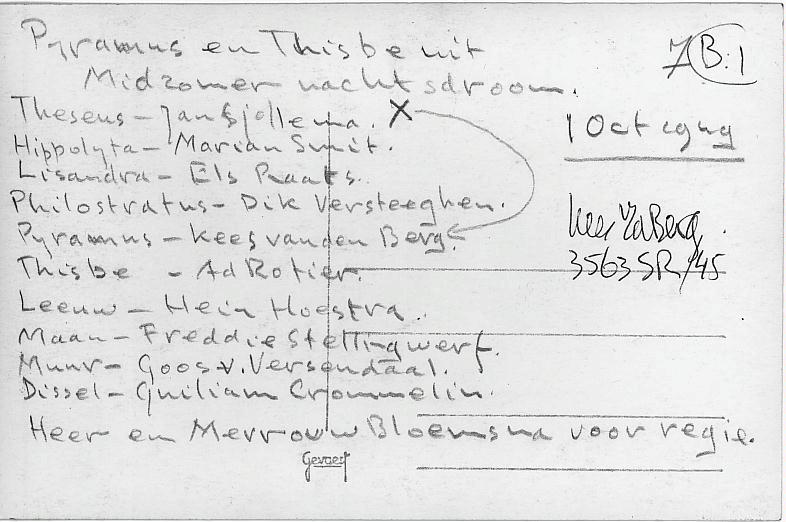 Pyramus en Thisbe uit
Midzomernachtsdroom.
7 B:1
Theseus - Jan Sjollema. X
1 Oct 1949
Hippolyta - Marian Smit.
Lisandra - Els Raats.
Philostratus - Dik Versteeghen.
Pyramus - Kees van den Berg.
Kees vd Berg
3563 SR/45
Thisbe - Ad Rotier.
Leeuw - Hein Hoestra.
Maan - Freddie Stellingwerf.
Muur - Goos v. Versendaal.
Dissel - Guiliam Crommelin.
Heer en Mevrouw Bloemsma voor regie.
Gevaert